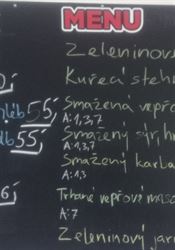 MENU
Zeleninov
Kuřecí steh
Smažená vepřo
55,-
A:1,3,7
Smažený sýr, hr
55,-
A:1,3,7
Smažený karba
A:1,3
Trhané vepřové maso
A:7
Zeleninový jar